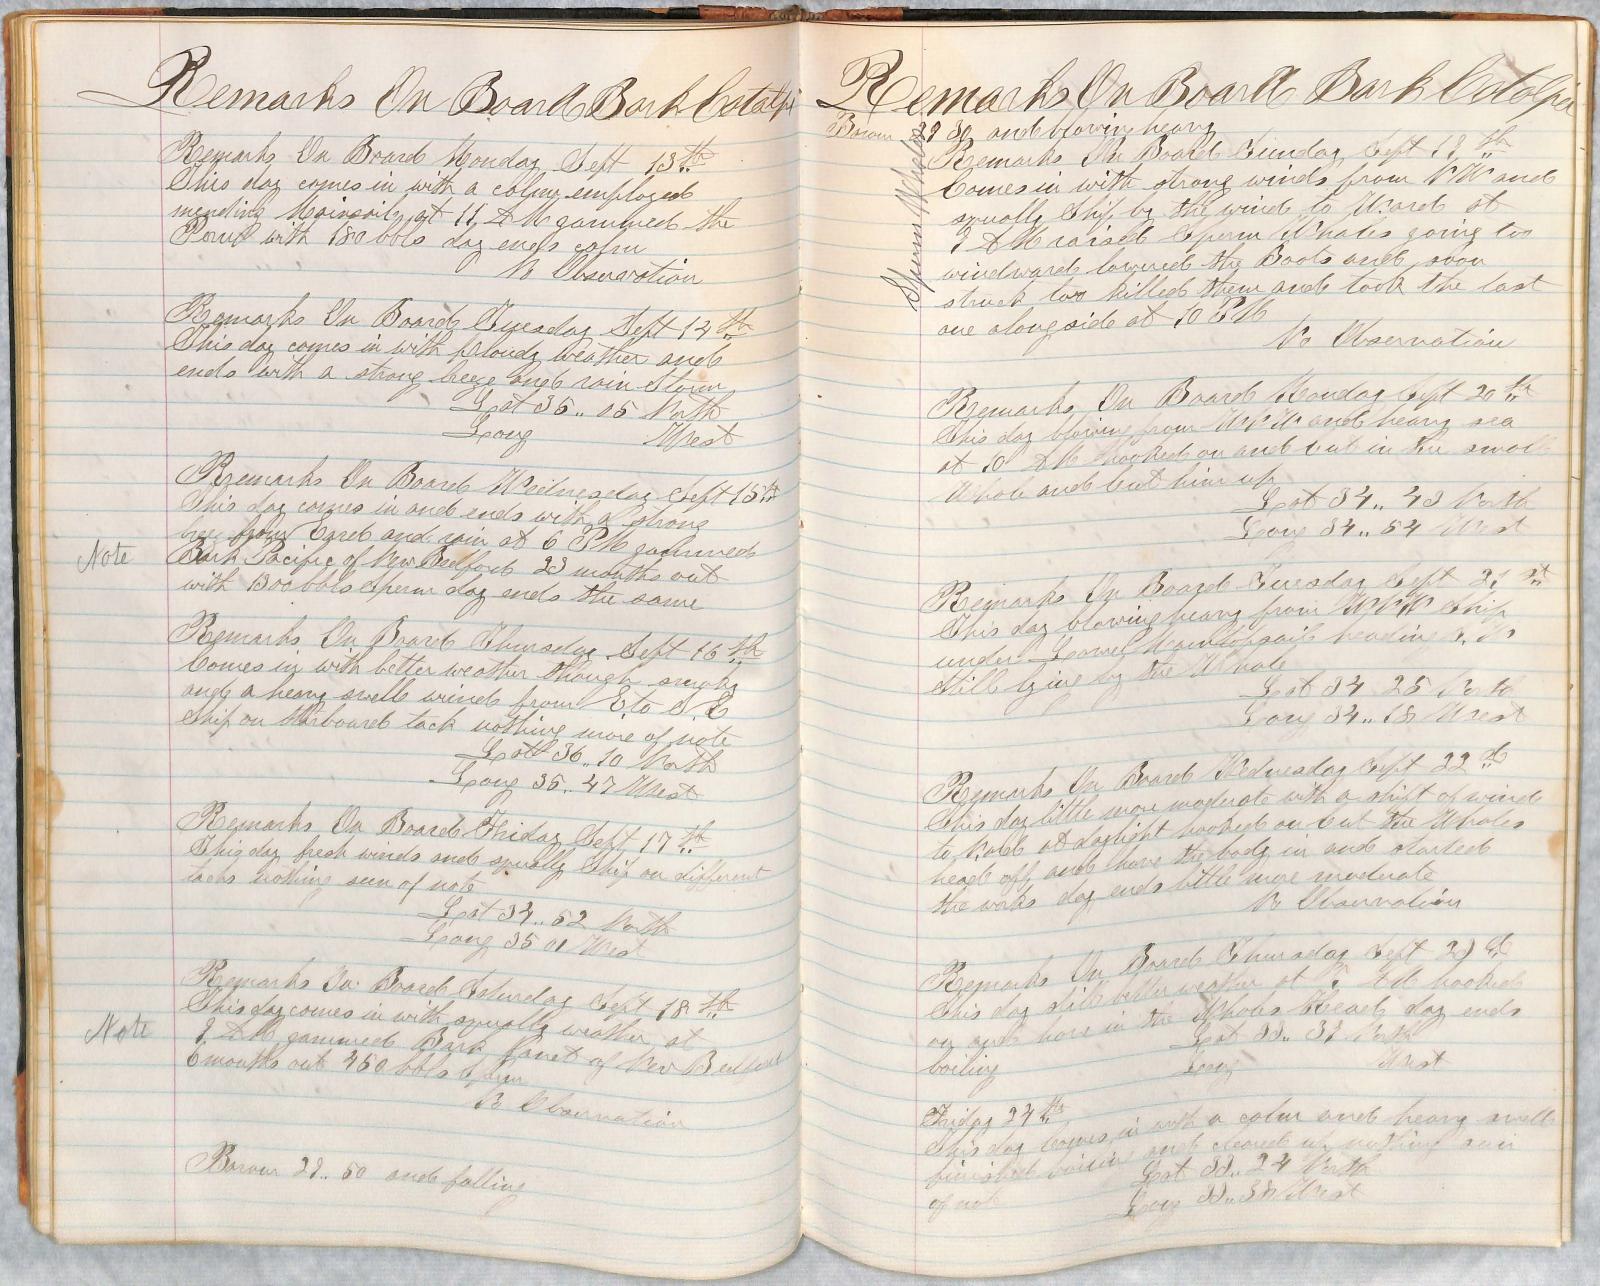 Remarks On Board Bark Catalpa
Remarks On Board Monday Sept 13th
This day comes in with a calm employed
mending Mainsail at 11 AM gammed the
with 180 bbls day ends calm
No Observation
Remarks On Board Tuesday Sept 14th
This day comes in with Cloudy Weather and
ends with a strong breeze and rain Storm
Lat 35.. 05 North
Long West
Remarks On Board Wednesday Sept 15th
This day comes in and ends with a strong
from Eard and rain at 6 PM gammed
Note
Bark Pacific of New Bedford 23 months out
with 1300 bbls Sperm day ends the same
Remarks On Board Thursday Sept 16th
Comes in with better weather though smoky
and a heavy swell wind from E to S.E
Ship on tack nothing more of note
Lat 36.. 10 North
Long 35.. 47 West
Remarks On Board Friday Sept 17th
This day fresh winds and squally Ship on different
tacks nothing seen of note
Lat 34.. 52 North
Long 35 01 West
Remarks On Board Saturday Sept 18th
This day comes in with squally weather at
Note
9 AM gammed Bark Janet of New Bedford
6 months out 450 bbls Sperm
No Observation
Barom 29.. 50 and falling
Remarks On Board Bark Catalpa
Barom 29 30 and blowing heavy
Remarks On Board Sunday Sept 19th
Comes in with strong winds from NW and
squally Ship by the wind to Ward at
9 AM raised Sperm Whales going to
Sperm Whales
windward lowered the Boats and soon
struck two killed them and took the last
one alongside at 10 PM
No Observation
Remarks On Board Monday Sept 20th
This day blowing from WNW and heavy sea
at 10 AM hooked on and cut in the small
Whale and cut him up
Lat 34.. 43 North
Long 34.. 54 West
Remarks On Board Tuesday Sept 21st
This day blowing heavy from WNW Ship
under Lower Maintopsail heading
still lying by the Whale
Lat 34 25 North
Long 34.. 18 West
Remarks On Board Wednesday Sept 22
This day little more moderate with a shift of wind
to at daylight hooked on cut the Whales
head off and hove the body in and started
the works day ends little more moderate
No Observation
Remarks On Board Thursday Sept 23
This day still better weather at AM hooked
on and hove in the Whales Head day ends
boiling
Lat 33.. 39 North
Long West
Friday 24th
This day Comes in with a calm and heavy swell
finished boiling and cleared up nothing seen
of note
Lat 33.. 24 North
Long 33.. West